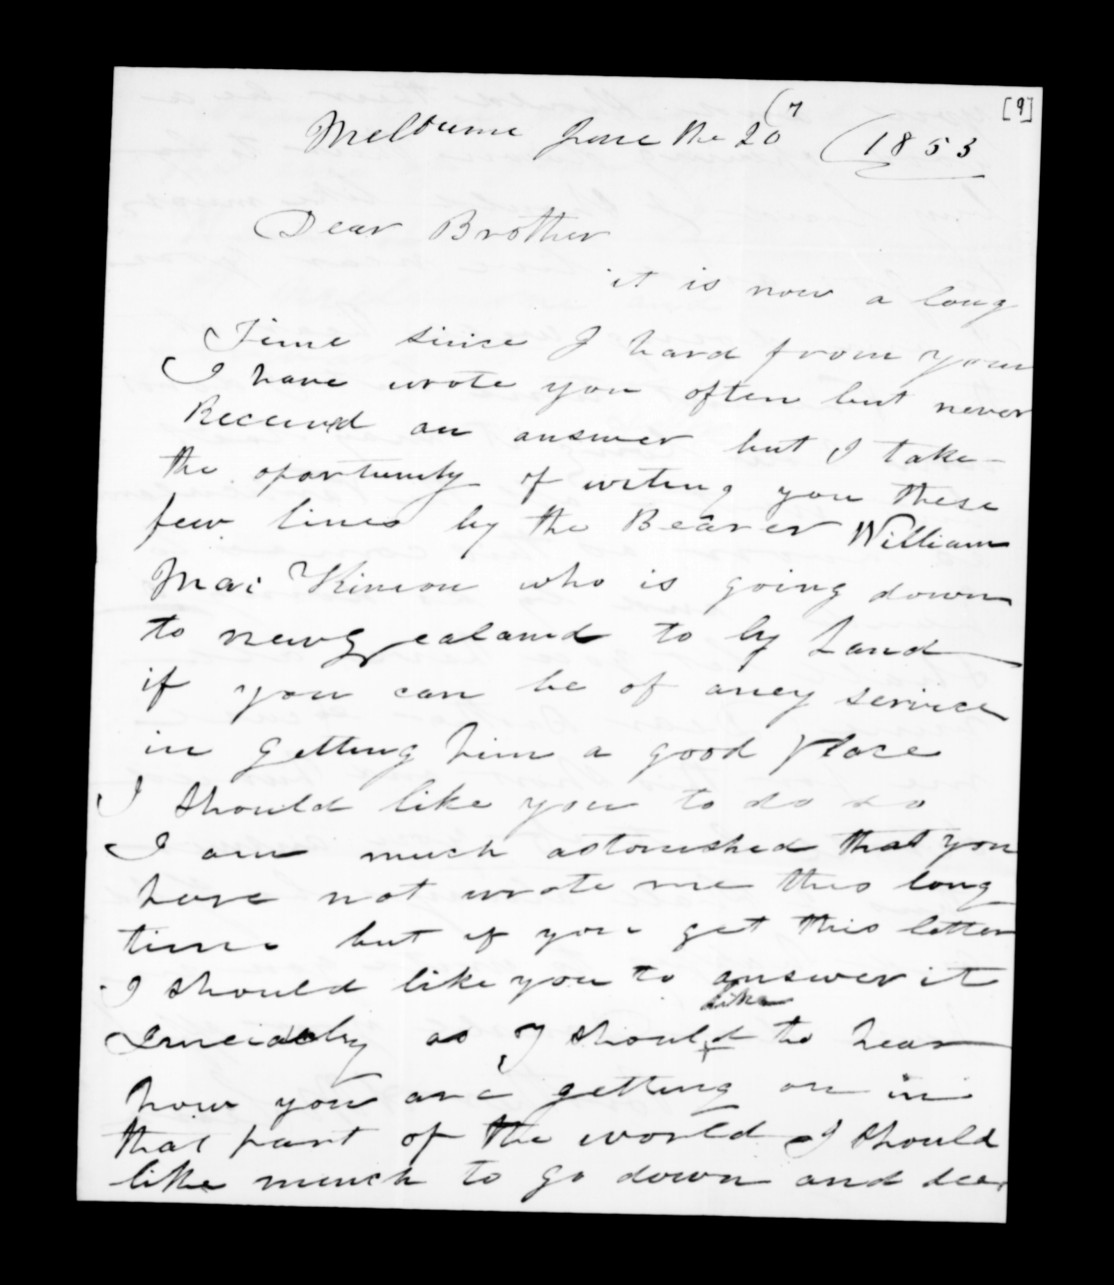 [9]
Melburne June the 20 (7 (1853
Dear Brother
it is now a long
Time since I hard from your
I have wrote you often but never
Received an answer but I take
the oportunity of writing you these
few lines by the Bearer William
Mac Kinnon who is going down
to new zealand to by Land
if you can be of aney service
in getting him a good place
I should like you to do so
I am much astonished that you
have not wrote me this long
time but if you get this letter
I should like you to answer it
as I should like to hear
how you are getting on in
that part of the world I should
like much to go down and see